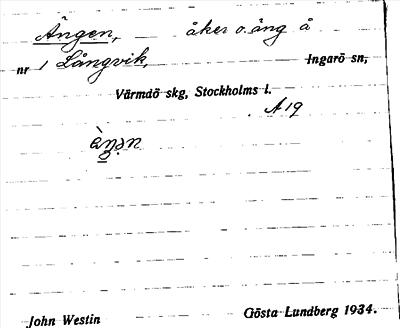 Ängen, åker o. äng å
nr 1 Långvik, Ingarö sn,
Värmdö skg, Stockholms l.
A 19
John Westin Gösta Lundberg 1934.